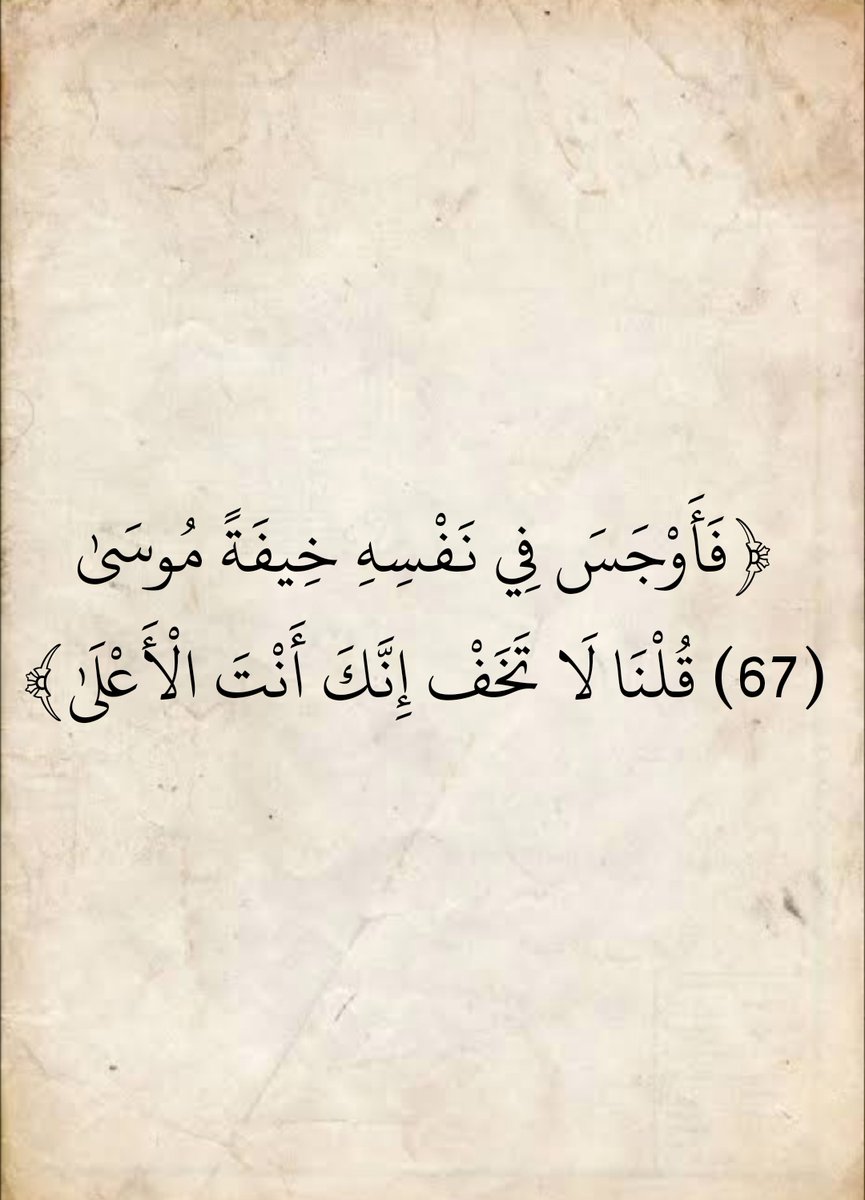 ﴿فَأَوْجَسَ فِي نَفْسِهِ خِيفَةً مُوسَىٰ
(67) قُلْنَا لَا تَخَفْ إِنَّكَ أَنْتَ الْأَعْلَىٰ﴾